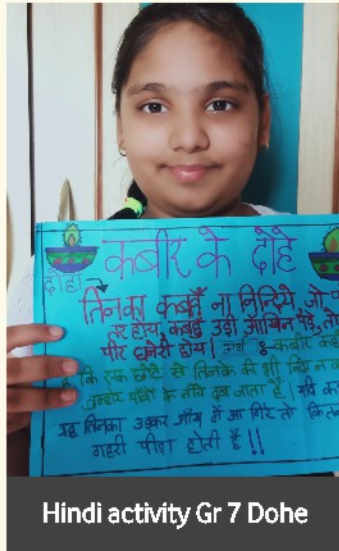 कबीर के दोहे
दोहा →
तिनका कबहुँ ना निन्दिये, जो
तर होय, कबहुँ उड़ी आँखिन पड़े, तो
पीर घनेरी होय। अर्थ :- कबीर
कि एक छोटे से तिनके की भी निंदा न
तुम्हारे पाँवों के नीचे दब जाता है। यदि
यह तिनका उड़कर आँख में आ गिरे तो
गहरी पीड़ा होती है !!
Hindi activity Gr 7 Dohe